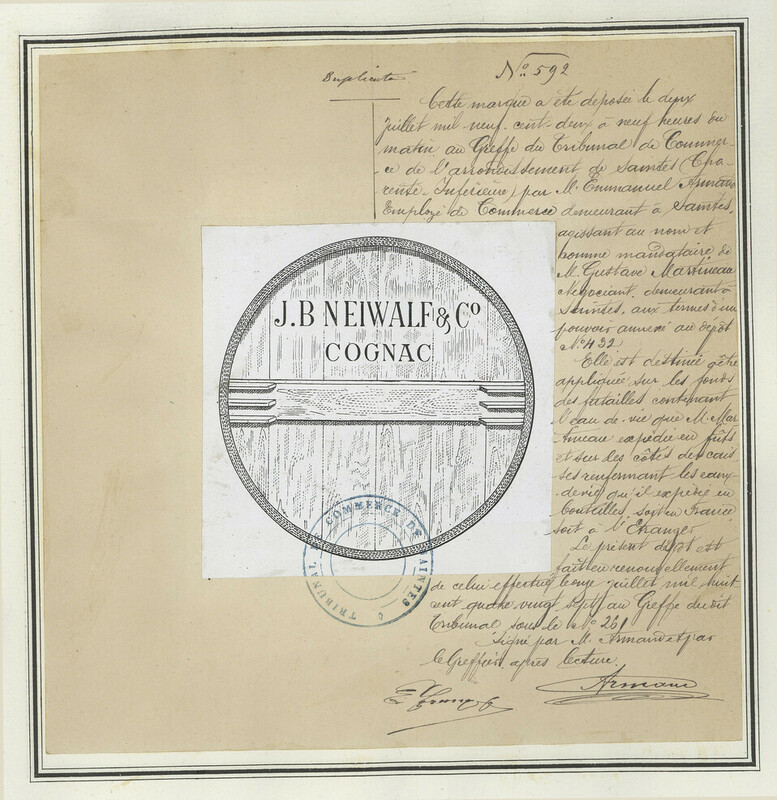 Duplicata
Nº 592
Cette marque a été déposée le deux
Juillet mil neuf cent deux à neuf heures du
matin au Greffe du Tribunal de Commer-
ce de l'arrondissement de Saintes (Cha-
rente Inférieure) par M. Emmanuel Armand
Employé de Commerce demeurant à Saintes,
agissant au nom et
comme mandataire de
M. Gustave Martineau
Négociant, demeurant à
Saintes, aux termes d'un
pouvoir annexé au dépôt
Nº 432.
Elle est destinée à être
appliquée sur les fonds
des futailles contenant
l'eau-de-vie que M. Mar-
tineau expédie en fûts
et sur des côtés des cais-
ses renfermant les eaux-
de-vie qu'il expédie en
bouteilles, soit en France
soit à l'Etranger.
Le présent dépôt est
fait en renouvellement
de celui effectué le onze juillet mil huit
cent quatre-vingt-sept au Greffe du dit
Tribunal sous le Nº 261
Signé par M. Armand et par
le Greffier, après lecture.
Armand
J.B NEIWALF & Cº
COGNAC
TRIBUNAL DE COMMERCE DE SAINTES